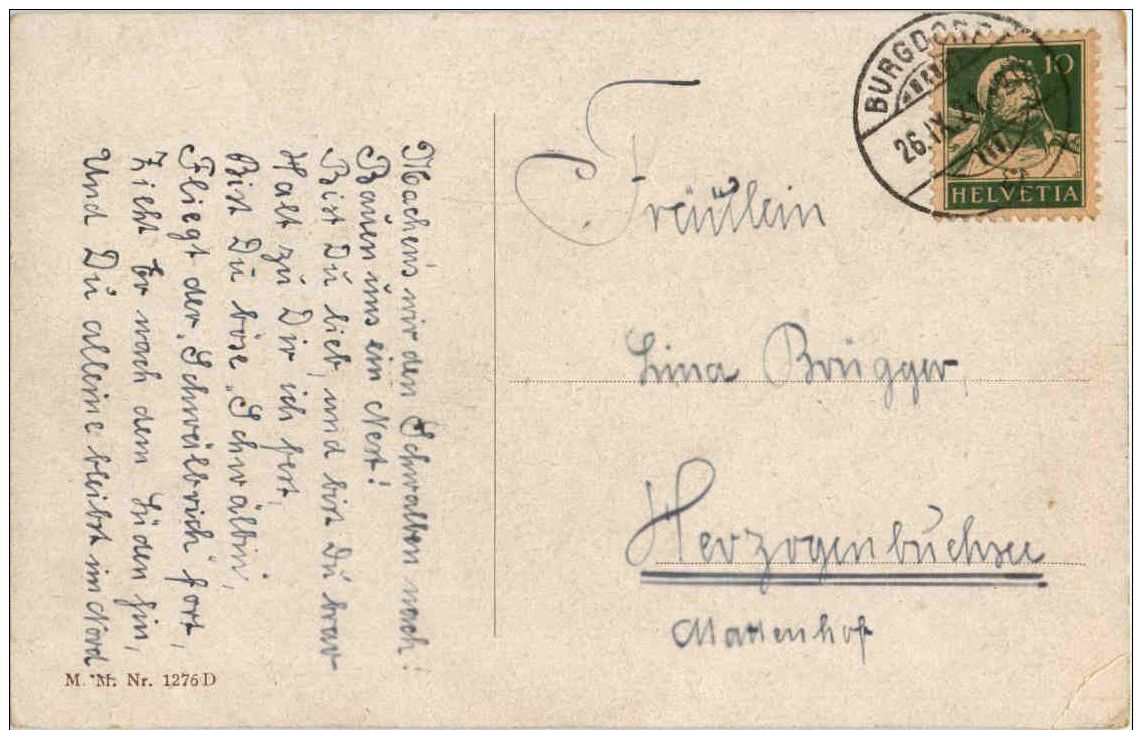 Machens wir den Schwalben nach!
Bauen uns ein Nest!
Bist Dŭ lieb, und bist Dŭ brav
Halt zŭ Dir ich fest,
Bist Dŭ böse „Schwälbin",
Fliegt der „Schwälbrich" fort,
Zieht Er nach dem Süden hin,
Und Dŭ alleine bleibst im Nord
M. M. Nr. 1276 D
BURGDORF
26. IX. 21
10
HELVETIA
Fräŭlein
Lina Brügger
Herzogenbŭchsee
Mattenhof